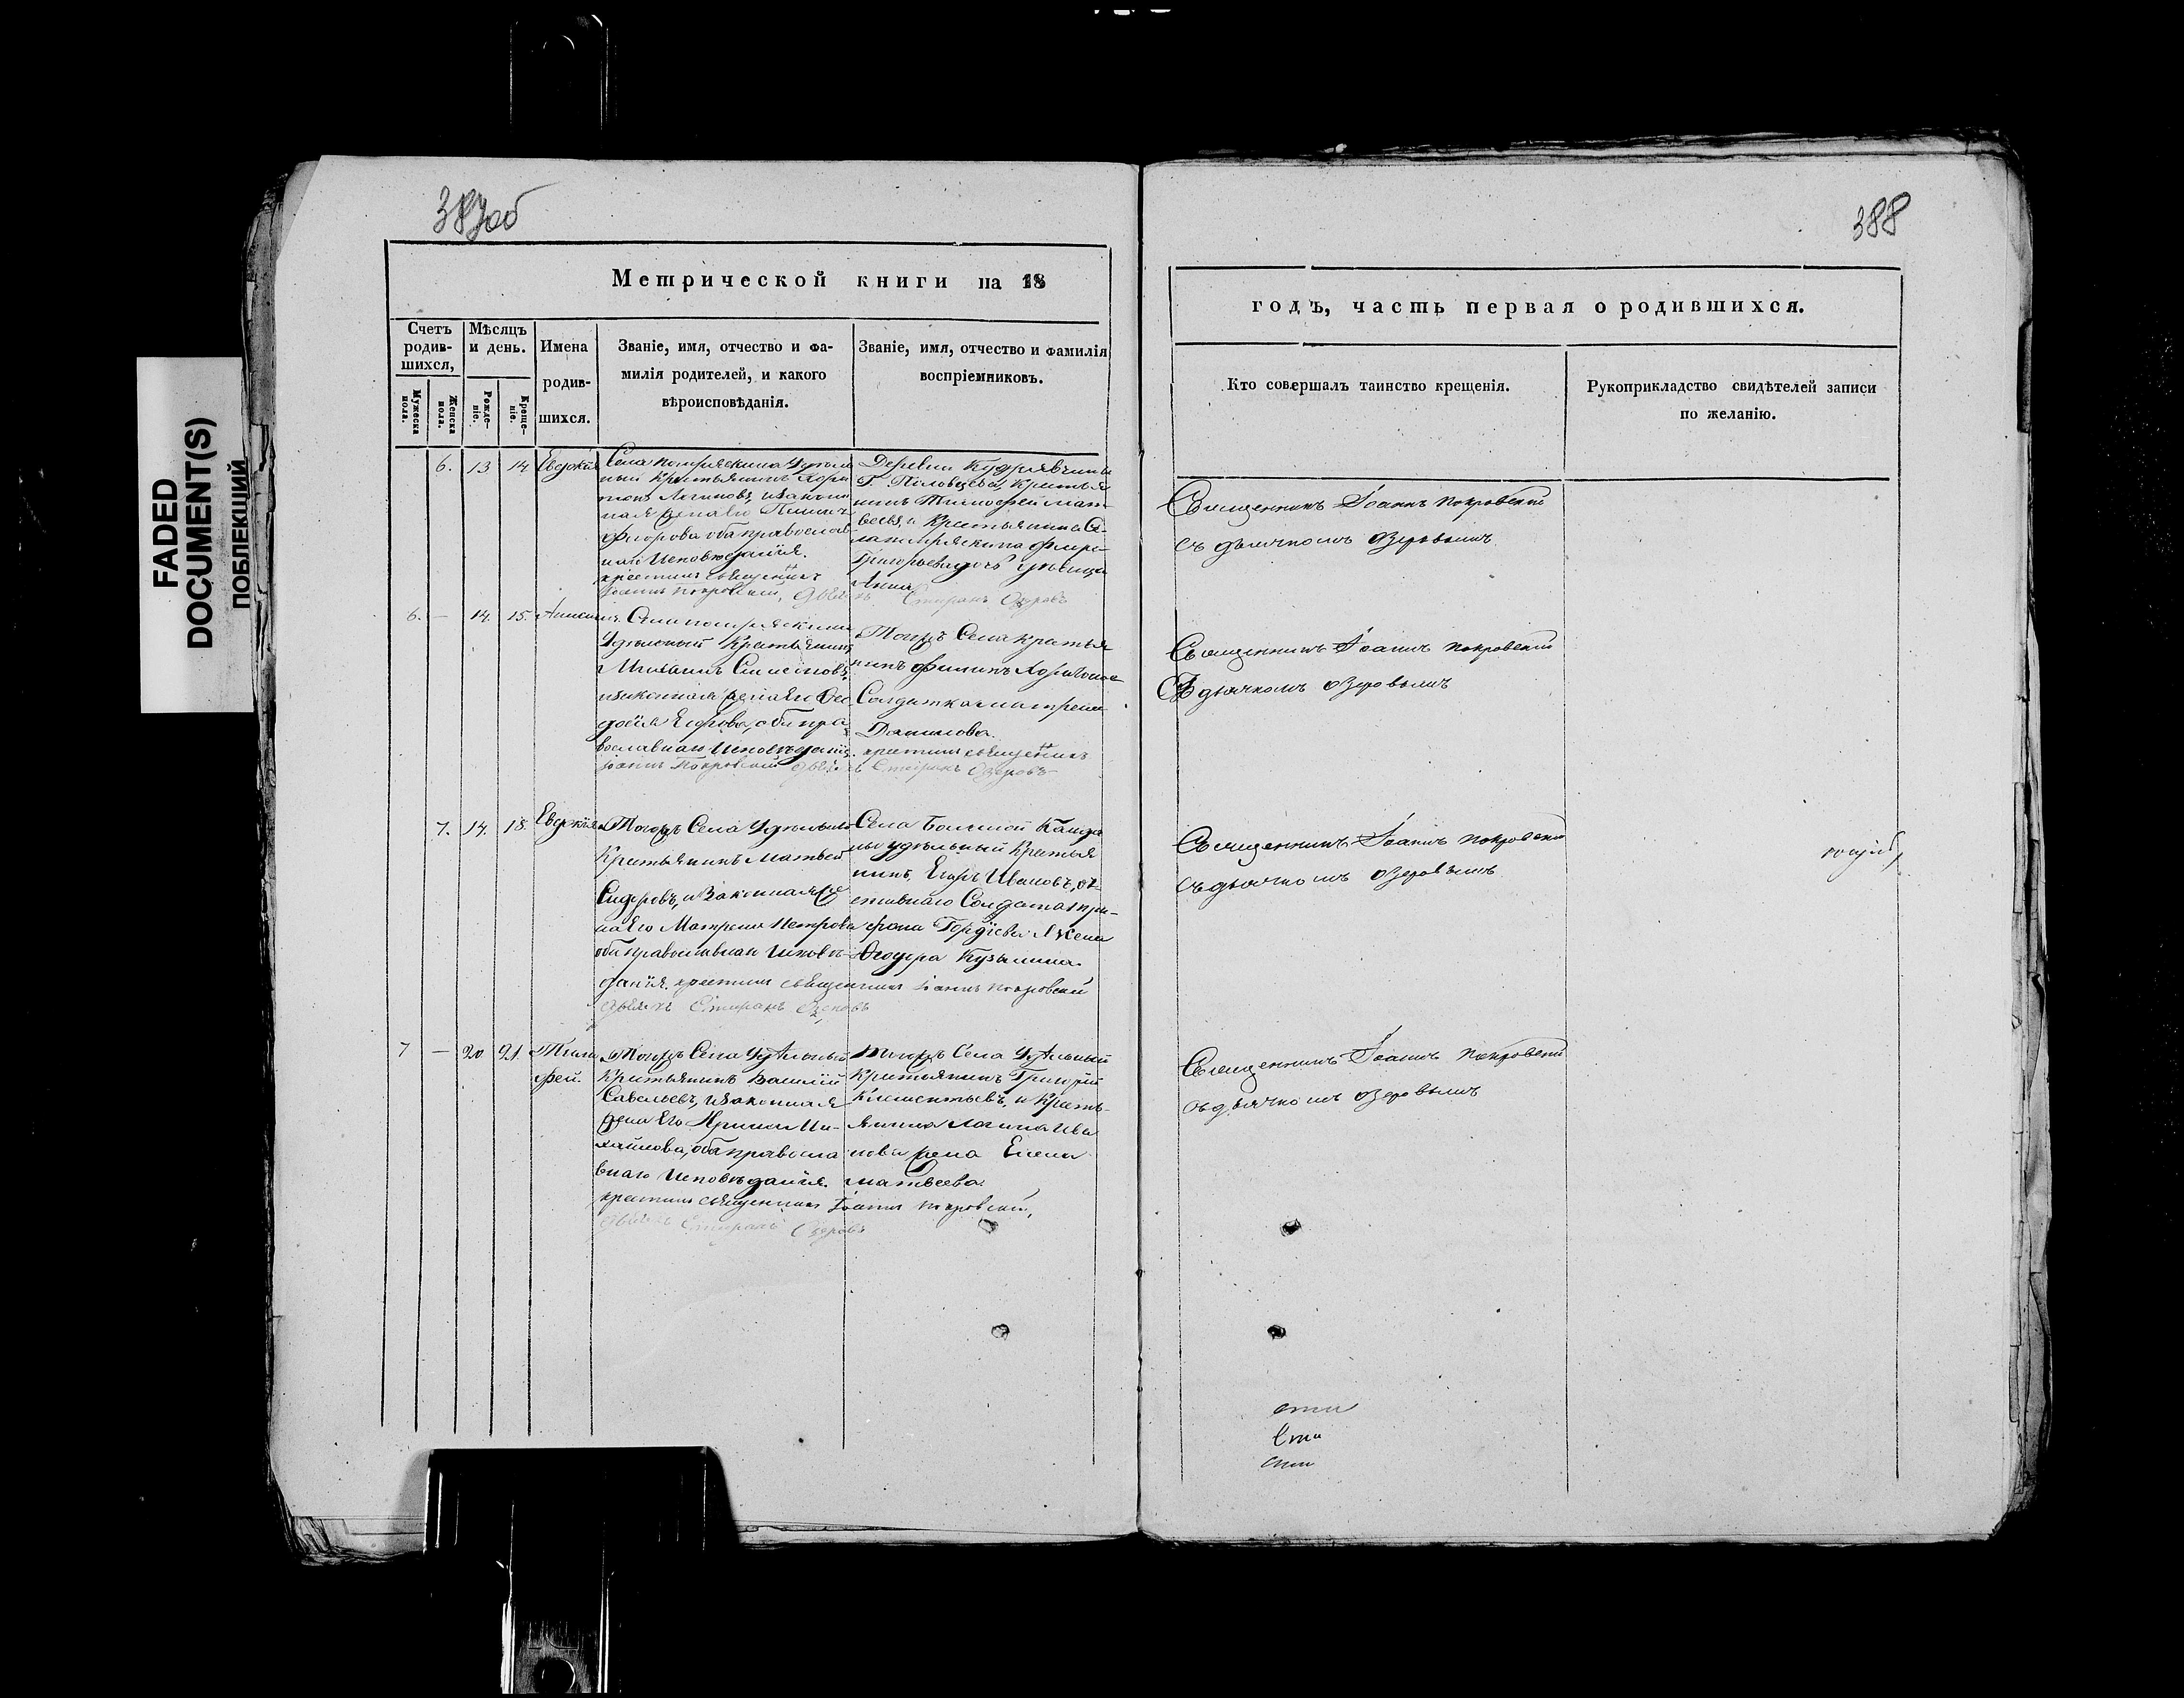 FADED
DOCUMENT(S)
ПОБЛЕКШИЙ
387об
388
Метрической книги на 18
годъ, часть первая о родившихся.
Счетъ родив-шихся,
Мужеска пола.
Женска пола.
Мѣсяцъ и день.
Рожде-ніе.
Креще-ніе.
Имена
родив-
шихся.
Званіе, имя, отчество и фа-
милія родителей, и какого
вѣроисповѣданія.
Званіе, имя, отчество и фамилія
воспріемниковъ.
Кто совершалъ таинство крещенія.
Рукоприкладство свидѣтелей записи
по желанію.
6. 13 14 Евдокія
Села Удѣль
ный Крестьянинъ Хари
тонъ Логиновъ, и закон
ная жена его
оба православ
наго Исповѣданія.
крестилъ священникъ
Іоаннъ Покровскій,
Деревни
Крестья
нинъ Тимофей Мат
вѣевъ, и Крестьянина Се
Григорьева дочь дѣвица
Анна
Стиранъ Озеровъ
Священникъ Іоаннъ Покровскій
съ дьячкомъ Озеровымъ
6. — 14. 15.
Села
Удѣльный Крестьянинъ
Михаилъ Симеоновъ,
и законная жена его Фео
досія Егорова, оба пра
вославнаго Исповѣданія.
Іоаннъ Покровскій
Тогожъ Села Крестья
нинъ Филипъ Харитонов
Солдатка Матрена
Данилова.
крестилъ священникъ
Стиранъ Озеровъ
Священникъ Іоаннъ Покровскій
Съ дьячкомъ Озеровымъ
7. 14. 18. Евдокія
Тогожъ Села Удѣльный
Крестьянинъ Матвей
Сидоровъ, и Законная же
на Его Матрена Петрова
оба православнаго Исповѣ-
данія. крестилъ священникъ Іоаннъ Покровскій
дьячекъ Стиранъ Озеровъ
Села Большой
ны удѣльный Крестья
нинъ, Егоръ Ивановъ, от
ставнаго Солдата Три-
фона Гордіева Жена
Феодора Кузьмина.
Священникъ Іоаннъ Покровскій
съ дьячкомъ Озеровымъ
7 — 20 21 Тимо
фей.
Тогожъ Села Удѣльный
Крестьянинъ Василій
Савельевъ, и законная
жена Его Ирина Ми-
хайлова, оба правосла
внаго Исповѣданія.
крестилъ священникъ Іоаннъ Покровскій,
дьячекъ Стиранъ Озеровъ
Тогожъ Села Удѣльный
Крестьянинъ Григорій
Климентьевъ, и Кресть-
янина Логина Ива
нова жена Елена
Матвеева.
Священникъ Іоаннъ Покровскій
съ дьячкомъ Озеровымъ
сти
Сти
сти